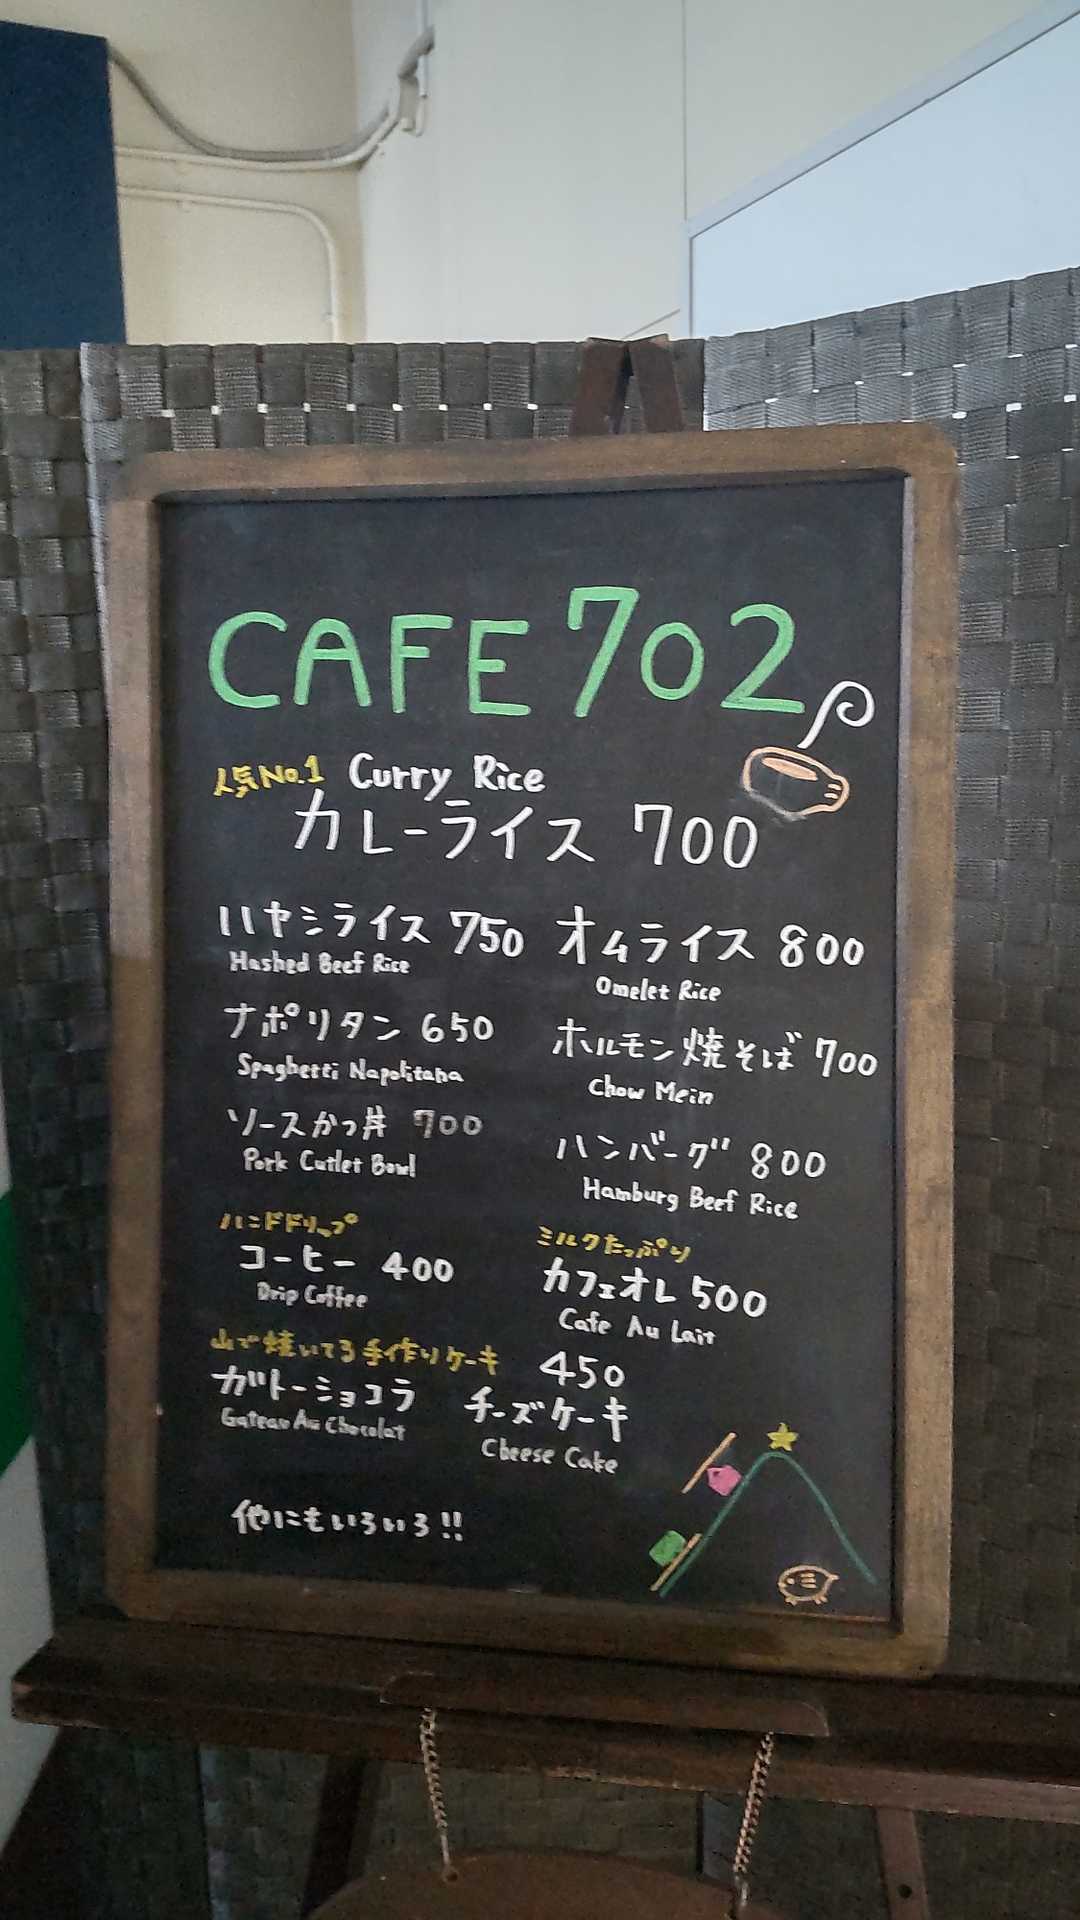 CAFE 702
人気No.1 Curry Rice
カレーライス 700
ハヤシライス 750 オムライス 800
Hashed Beef Rice Omelet Rice
ナポリタン 650 ホルモン焼そば 700
Spaghetti Napolitana Chow Mein
ソースかつ丼 700 ハンバーグ 800
Pork Cutlet Bowl Hamburg Beef Rice
ハンドドリップ ミルクたっぷり
コーヒー 400 カフェオレ 500
Drip Coffee Cafe Au Lait
山で焼いてる手作りケーキ 450
ガトーショコラ チーズケーキ
Gateau Au Chocolat Cheese Cake
他にもいろいろ!!